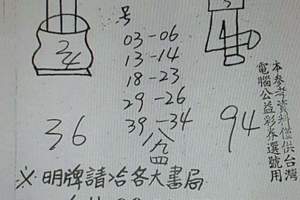 号
03-06
13-14
18-23
29-26
39-34
24
4
36
94
※明牌請洽各大書局
本參考資料僅供台灣
電腦公益彩券選號用